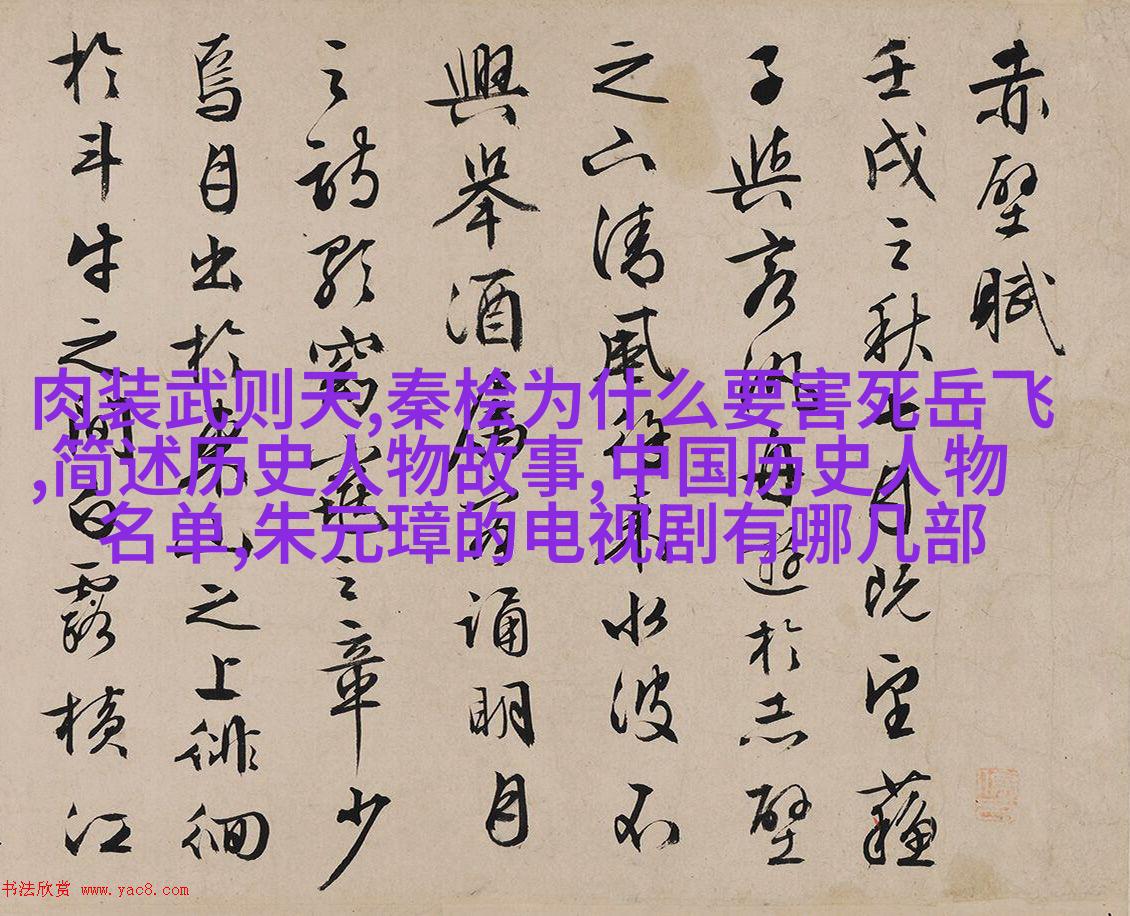 赤壁賦
壬戌之秋七月既望蘇
子與客泛舟遊於赤壁
之下清風徐來水波不
興舉酒屬客誦明月
之詩歌窈窕之章少
焉月出於東山之上徘徊
於斗牛之間白露橫江
肉装武则天,秦桧为什么要害死岳飞
,简述历史人物故事,中国历史人物
名单,朱元璋的电视剧有哪几部
书法欣赏 www.yac8.com